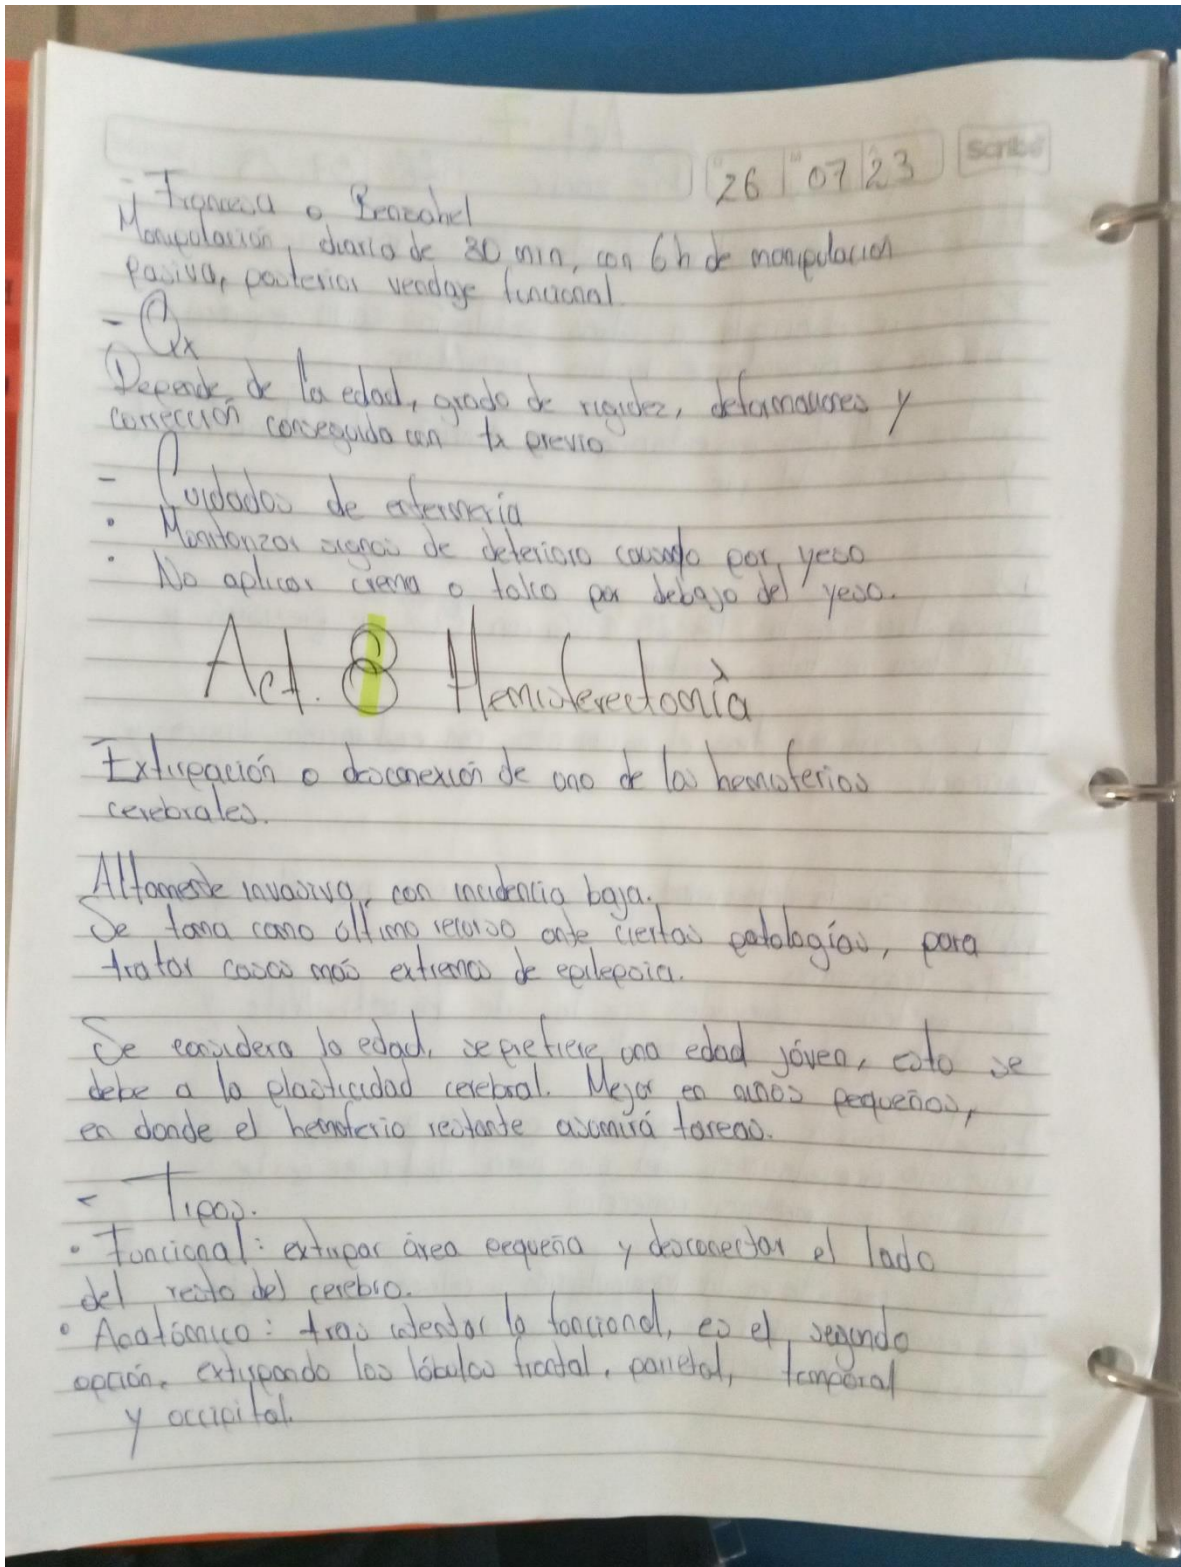 26 07 23
Scribe
- Francesa o Benzahel
Manipulación, diario de 30 min, con 6h de manipulación
pasiva, posterior vendaje funcional.
- Qx
Depende de la edad, grado de rigidez, deformaciones y
corrección conseguida con tx previo
- Cuidados de enfermería
• Monitorizar signos de deterioro causado por yeso
• No aplicar crema o talco por debajo del yeso.
Act. 8 Hemisferectomía
Extirpación o desconexión de uno de los hemisferios
cerebrales.
Altamente invasiva, con incidencia baja.
Se toma como último recurso ante ciertas patologías, para
tratar casos más extremos de epilepsia.
Se considera la edad, se prefiere una edad jóven, esto se
debe a la plasticidad cerebral. Mejor en niños pequeños,
en donde el hemisferio restante asumirá tareas.
- Tipos.
• Funcional: extirpar área pequeña y desconectar el lado
del resto del cerebro.
• Anatómico: tras intentar la funcional, es el segundo
opción, extirpando los lóbulos frontal, parietal, temporal
y occipital.